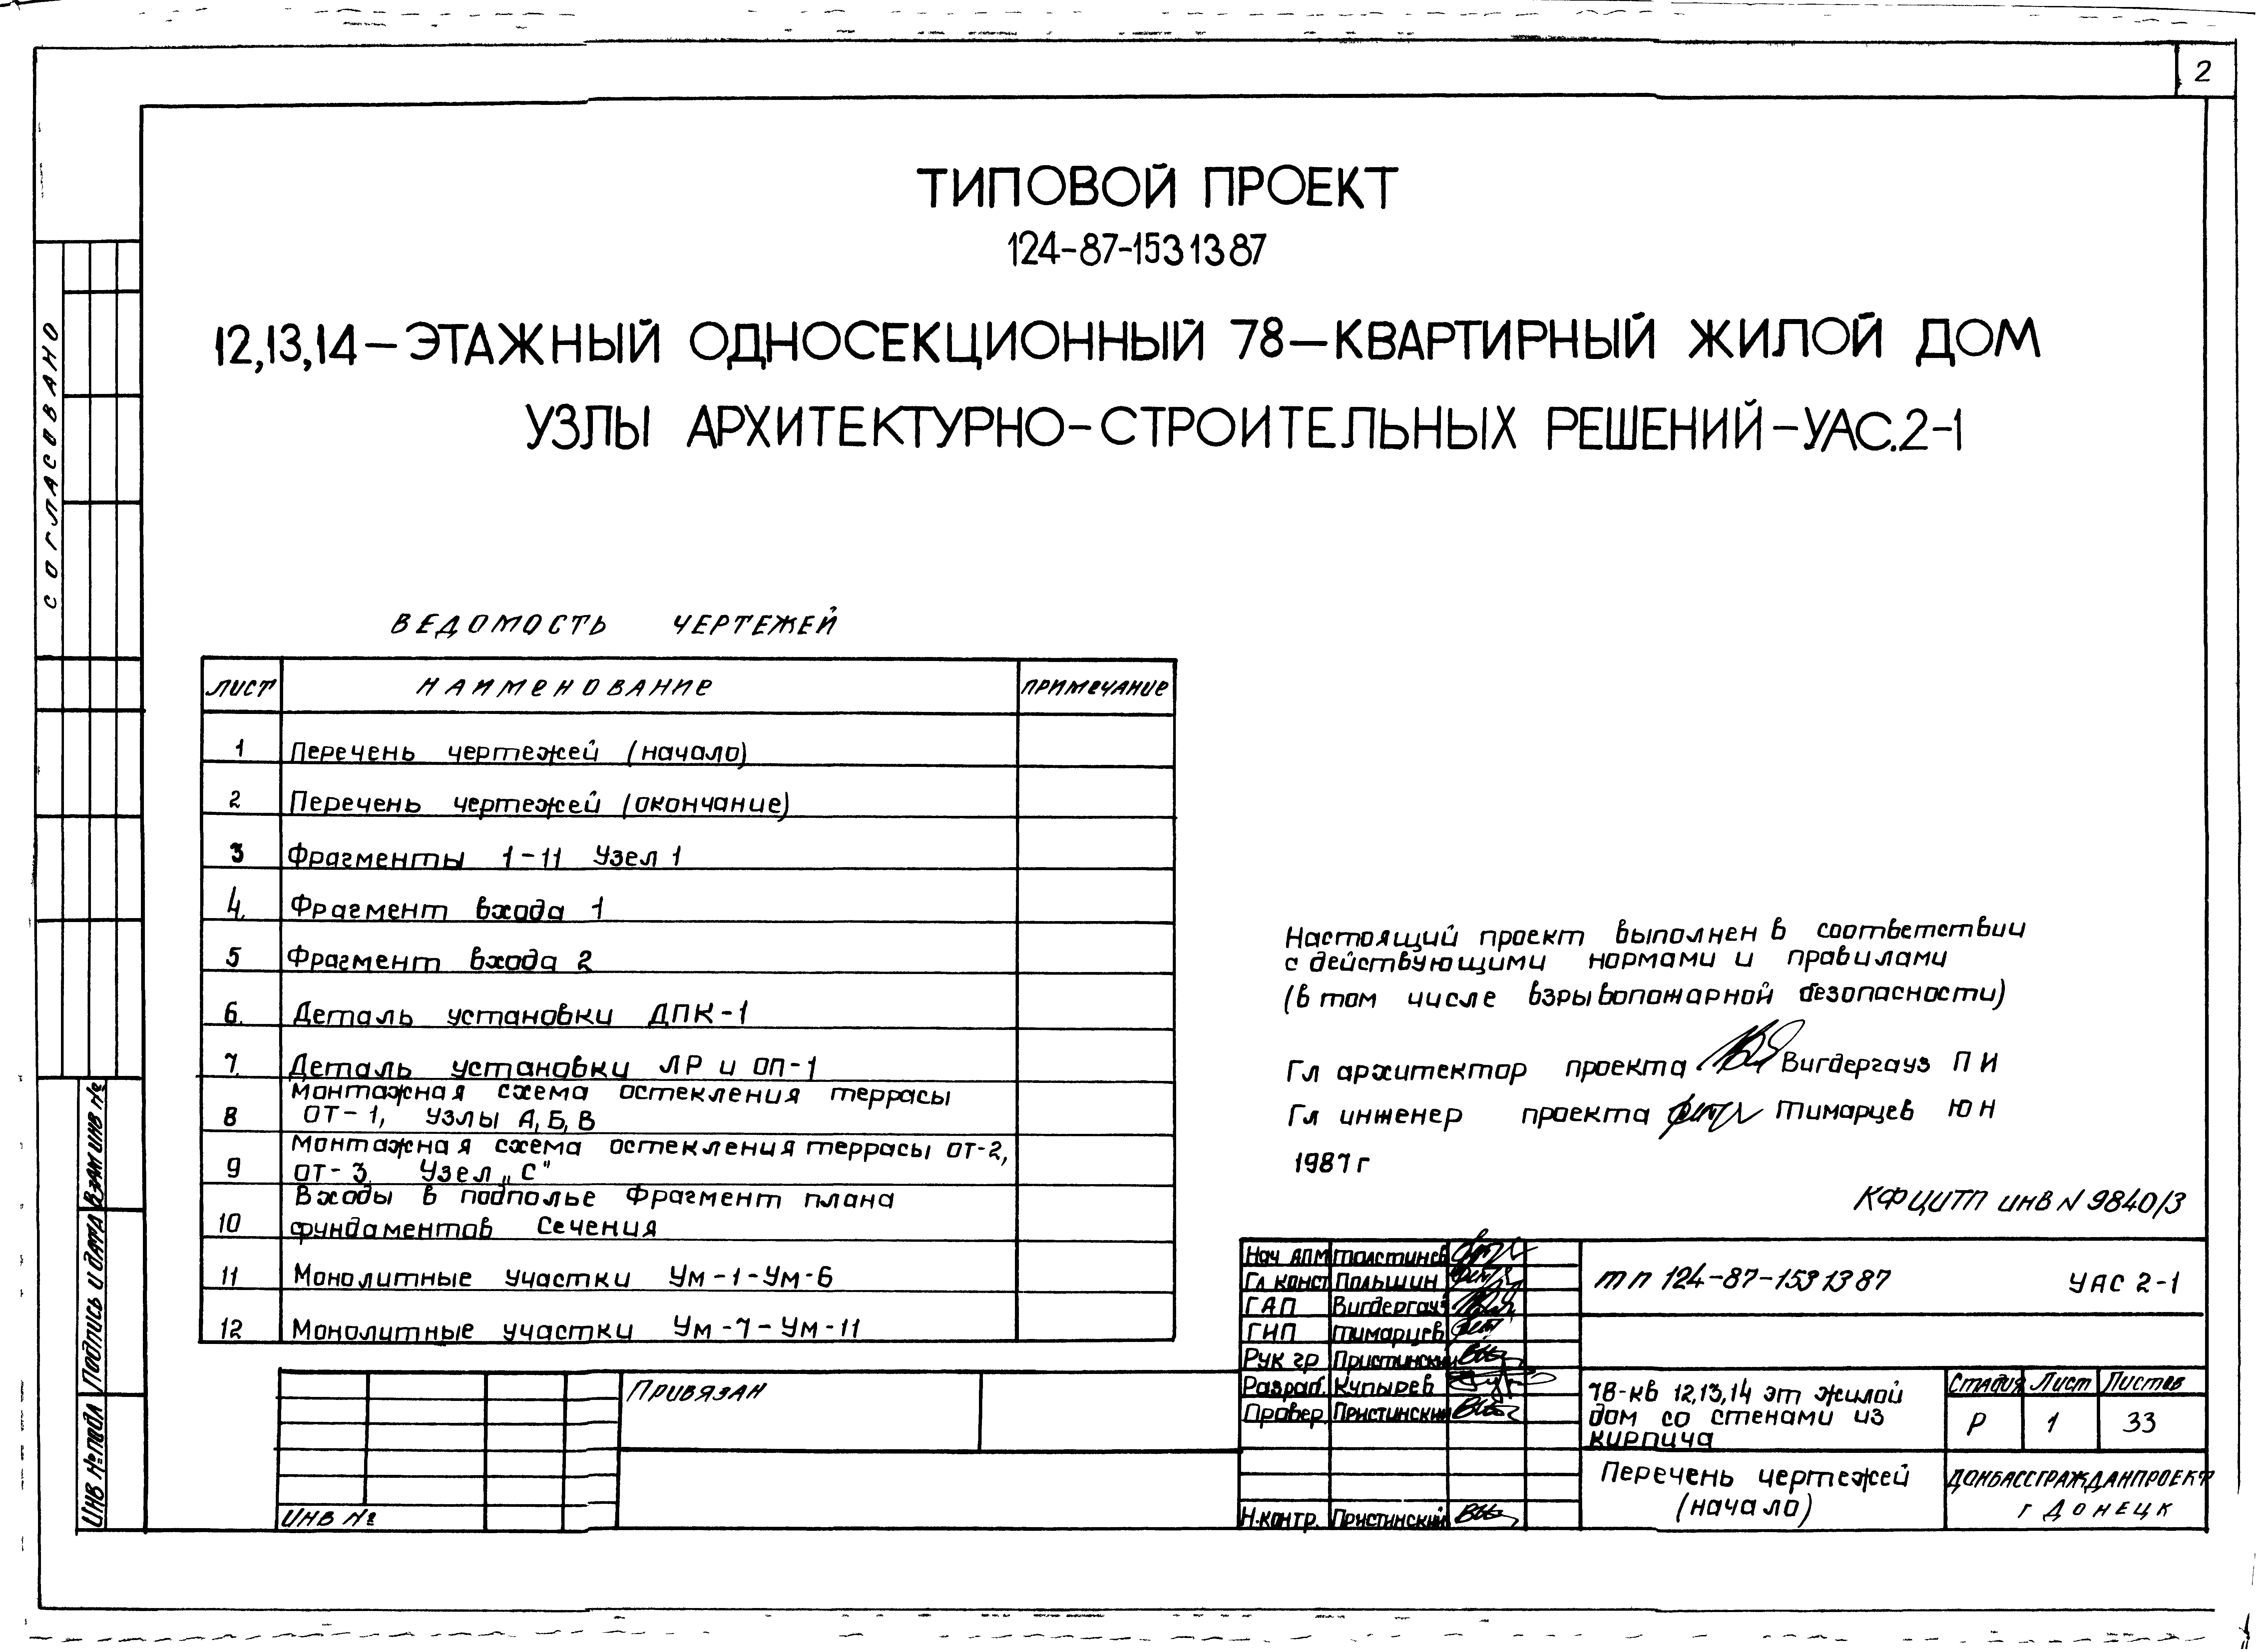 2
ТИПОВОЙ ПРОЕКТ
124-87-153 13 87
12,13,14-ЭТАЖНЫЙ ОДНОСЕКЦИОННЫЙ 78-КВАРТИРНЫЙ ЖИЛОЙ ДОМ
УЗЛЫ АРХИТЕКТУРНО-СТРОИТЕЛЬНЫХ РЕШЕНИЙ-УАС.2-1
СОГЛАСОВАНО
ВЕДОМОСТЬ ЧЕРТЕЖЕЙ
ЛИСТ НАИМЕНОВАНИЕ ПРИМЕЧАНИЕ
1 Перечень чертежей (начало)
2 Перечень чертежей (окончание)
3 Фрагменты 1-11 Узел 1
4 Фрагмент входа 1
5 Фрагмент входа 2
6 Деталь установки ДПК-1
7 Деталь установки ЛР и ОП-1
Монтажная схема остекления террасы
8 ОТ-1, Узлы А, Б, В
Монтажная схема остекления террасы ОТ-2,
9 ОТ-3 Узел „С"
Входы в подполье Фрагмент плана
10 фундаментов Сечения
11 Монолитные участки Ум-1-Ум-6
12 Монолитные участки Ум-7-Ум-11
Настоящий проект выполнен в соответствии
с действующими нормами и правилами
(в том числе взрывопожарной безопасности)
Гл архитектор проекта Вигдергауз П И
Гл инженер проекта Тимарцев Ю Н
1987 г
КФ ЦИТП инв N 9840/3
Взам инв №
Подпись и дата
Инв № подл
Привязан
Инв №
Нач АПМ Толстинев
Гл конст Польшин
ГАП Вигдергауз
ГИП Тимарцев
Рук гр Пристинский
Разраб. Купырев
Провер. Пристинский
Н.контр. Пристинский
ТП 124-87-153 13 87 УАС 2-1
78-кв 12,13,14 эт жилой
дом со стенами из
кирпича
Стадия Лист Листов
Р 1 33
Перечень чертежей
(начало)
ДОНБАССГРАЖДАНПРОЕКТ
г ДОНЕЦК